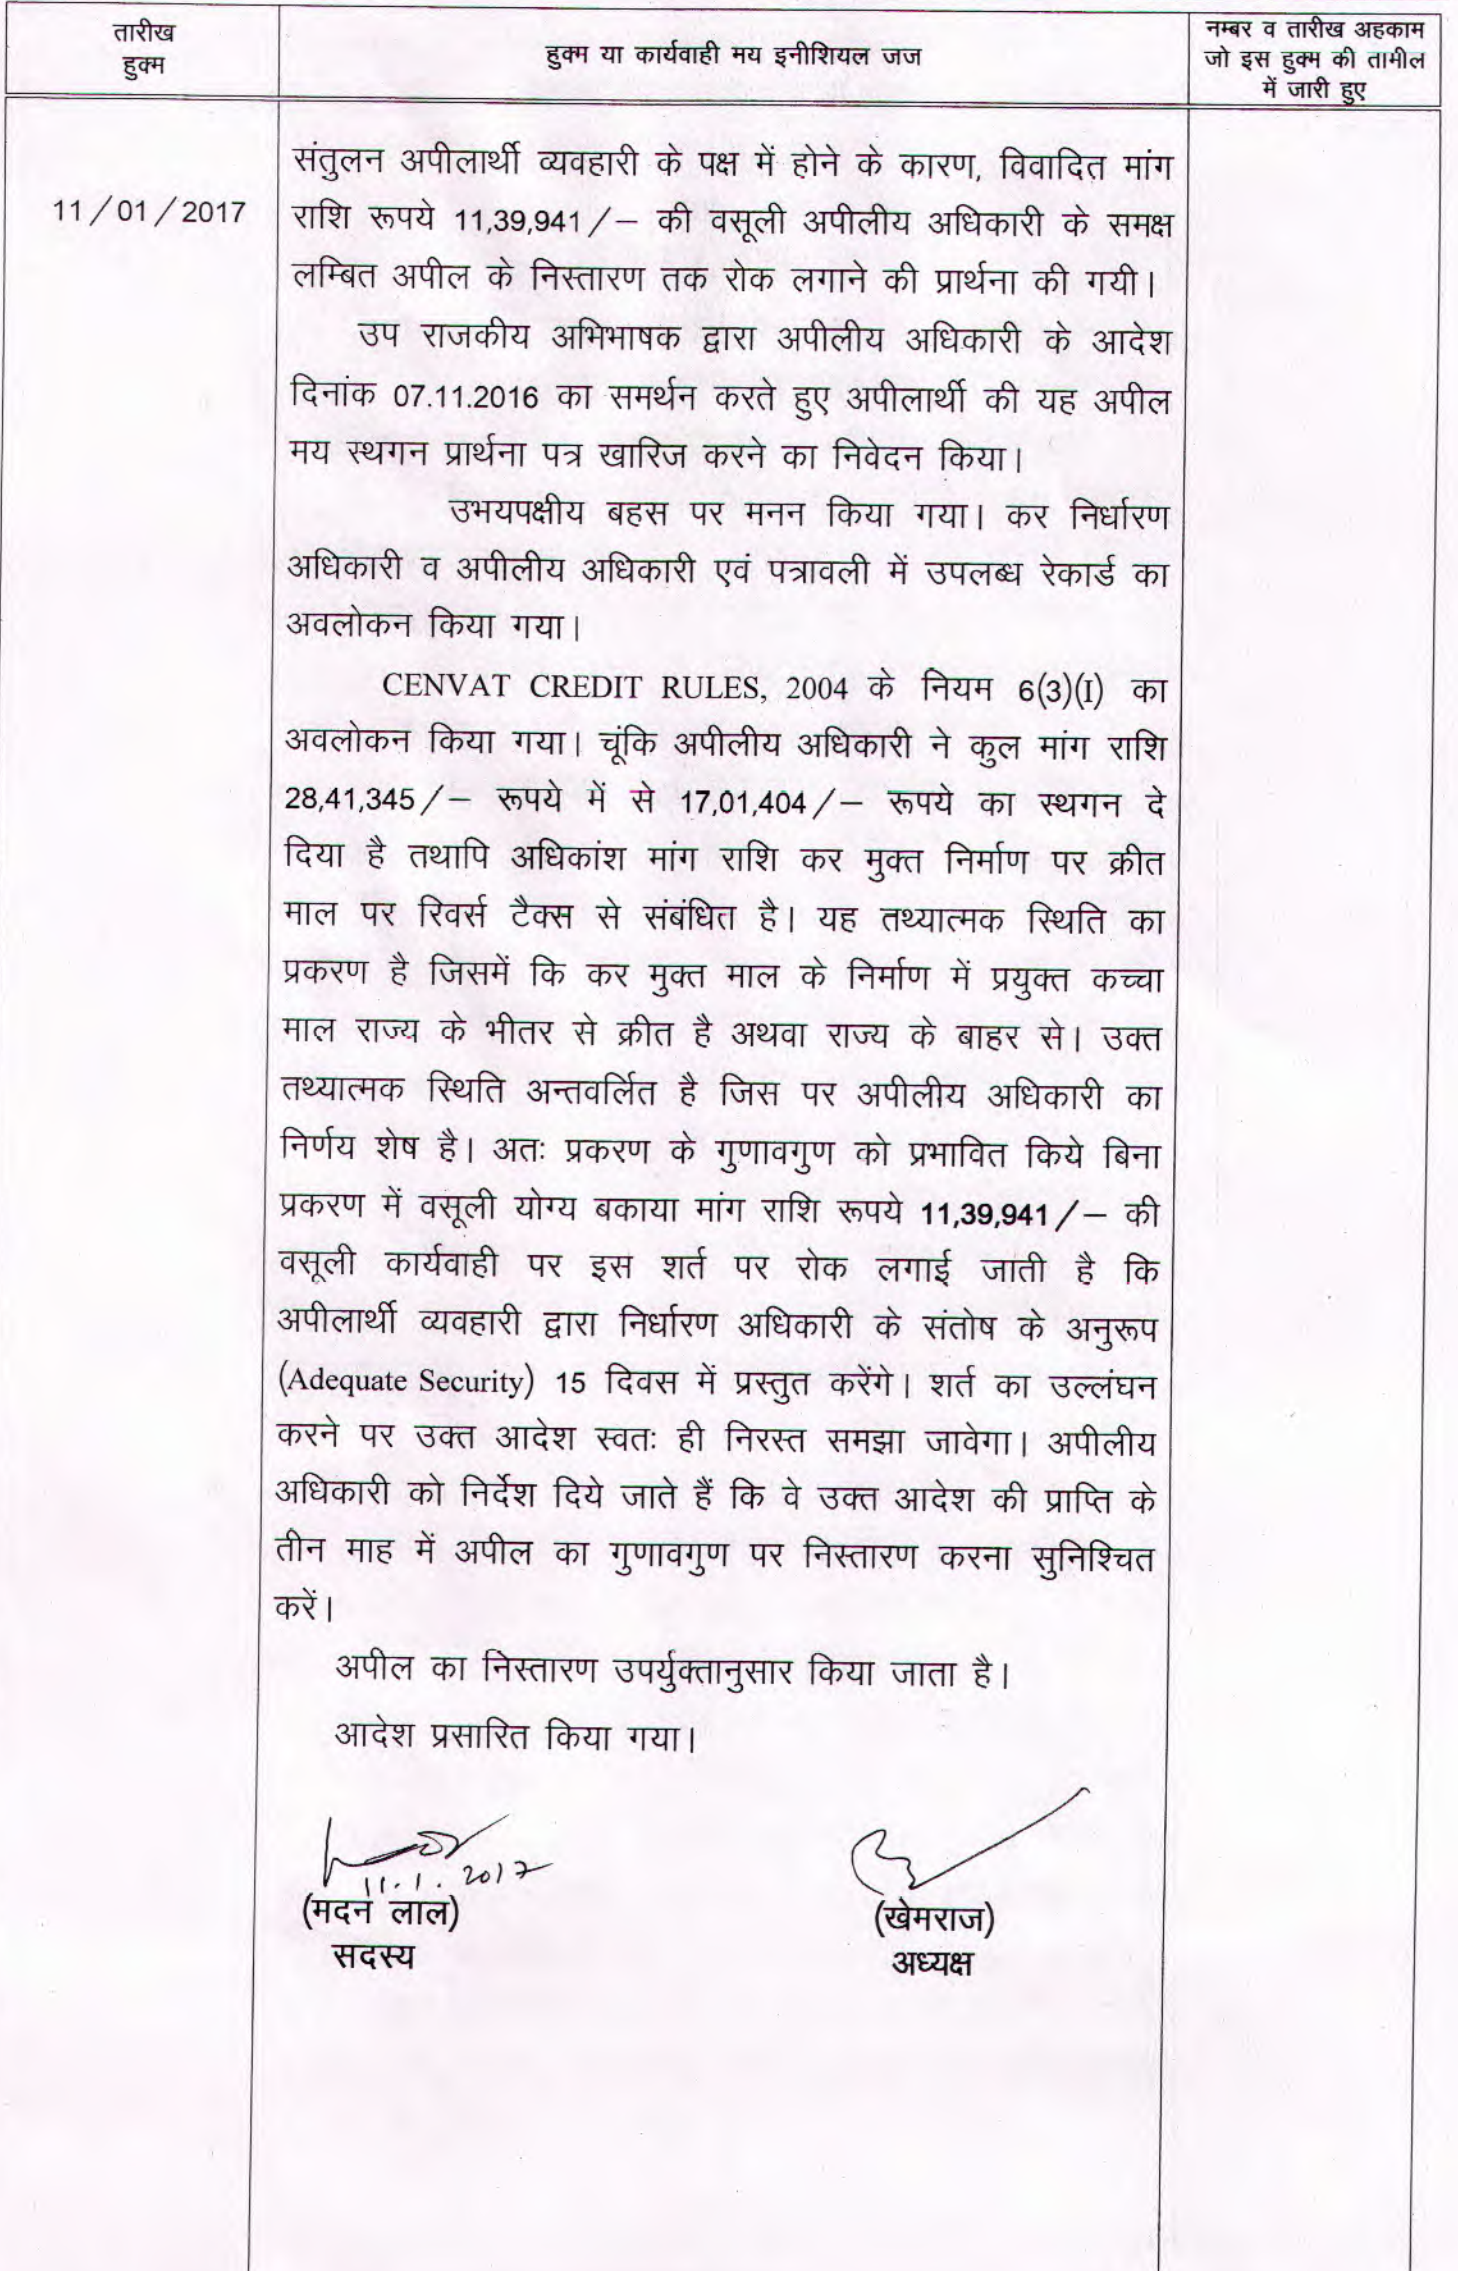 तारीख
हुक्म
हुक्म या कार्यवाही मय इनीशियल जज
नम्बर व तारीख अहकाम
जो इस हुक्म की तामील
में जारी हुए
11/01/2017
संतुलन अपीलार्थी व्यवहारी के पक्ष में होने के कारण, विवादित मांग
राशि रूपये 11,39,941/– की वसूली अपीलीय अधिकारी के समक्ष
लम्बित अपील के निस्तारण तक रोक लगाने की प्रार्थना की गयी।
उप राजकीय अभिभाषक द्वारा अपीलीय अधिकारी के आदेश
दिनांक 07.11.2016 का समर्थन करते हुए अपीलार्थी की यह अपील
मय स्थगन प्रार्थना पत्र खारिज करने का निवेदन किया।
उभयपक्षीय बहस पर मनन किया गया। कर निर्धारण
अधिकारी व अपीलीय अधिकारी एवं पत्रावली में उपलब्ध रेकार्ड का
अवलोकन किया गया।
CENVAT CREDIT RULES, 2004 के नियम 6(3)(I) का
अवलोकन किया गया। चूंकि अपीलीय अधिकारी ने कुल मांग राशि
28,41,345/– रूपये में से 17,01,404/– रूपये का स्थगन दे
दिया है तथापि अधिकांश मांग राशि कर मुक्त निर्माण पर क्रीत
माल पर रिवर्स टैक्स से संबंधित है। यह तथ्यात्मक स्थिति का
प्रकरण है जिसमें कि कर मुक्त माल के निर्माण में प्रयुक्त कच्चा
माल राज्य के भीतर से क्रीत है अथवा राज्य के बाहर से। उक्त
तथ्यात्मक स्थिति अन्तवर्लित है जिस पर अपीलीय अधिकारी का
निर्णय शेष है। अतः प्रकरण के गुणावगुण को प्रभावित किये बिना
प्रकरण में वसूली योग्य बकाया मांग राशि रूपये 11,39,941/– की
वसूली कार्यवाही पर इस शर्त पर रोक लगाई जाती है कि
अपीलार्थी व्यवहारी द्वारा निर्धारण अधिकारी के संतोष के अनुरूप
(Adequate Security) 15 दिवस में प्रस्तुत करेंगे। शर्त का उल्लंघन
करने पर उक्त आदेश स्वतः ही निरस्त समझा जावेगा। अपीलीय
अधिकारी को निर्देश दिये जाते हैं कि वे उक्त आदेश की प्राप्ति के
तीन माह में अपील का गुणावगुण पर निस्तारण करना सुनिश्चित
करें।
अपील का निस्तारण उपर्युक्तानुसार किया जाता है।
आदेश प्रसारित किया गया।
11.1.2017
(मदन लाल)
सदस्य
(खेमराज)
अध्यक्ष